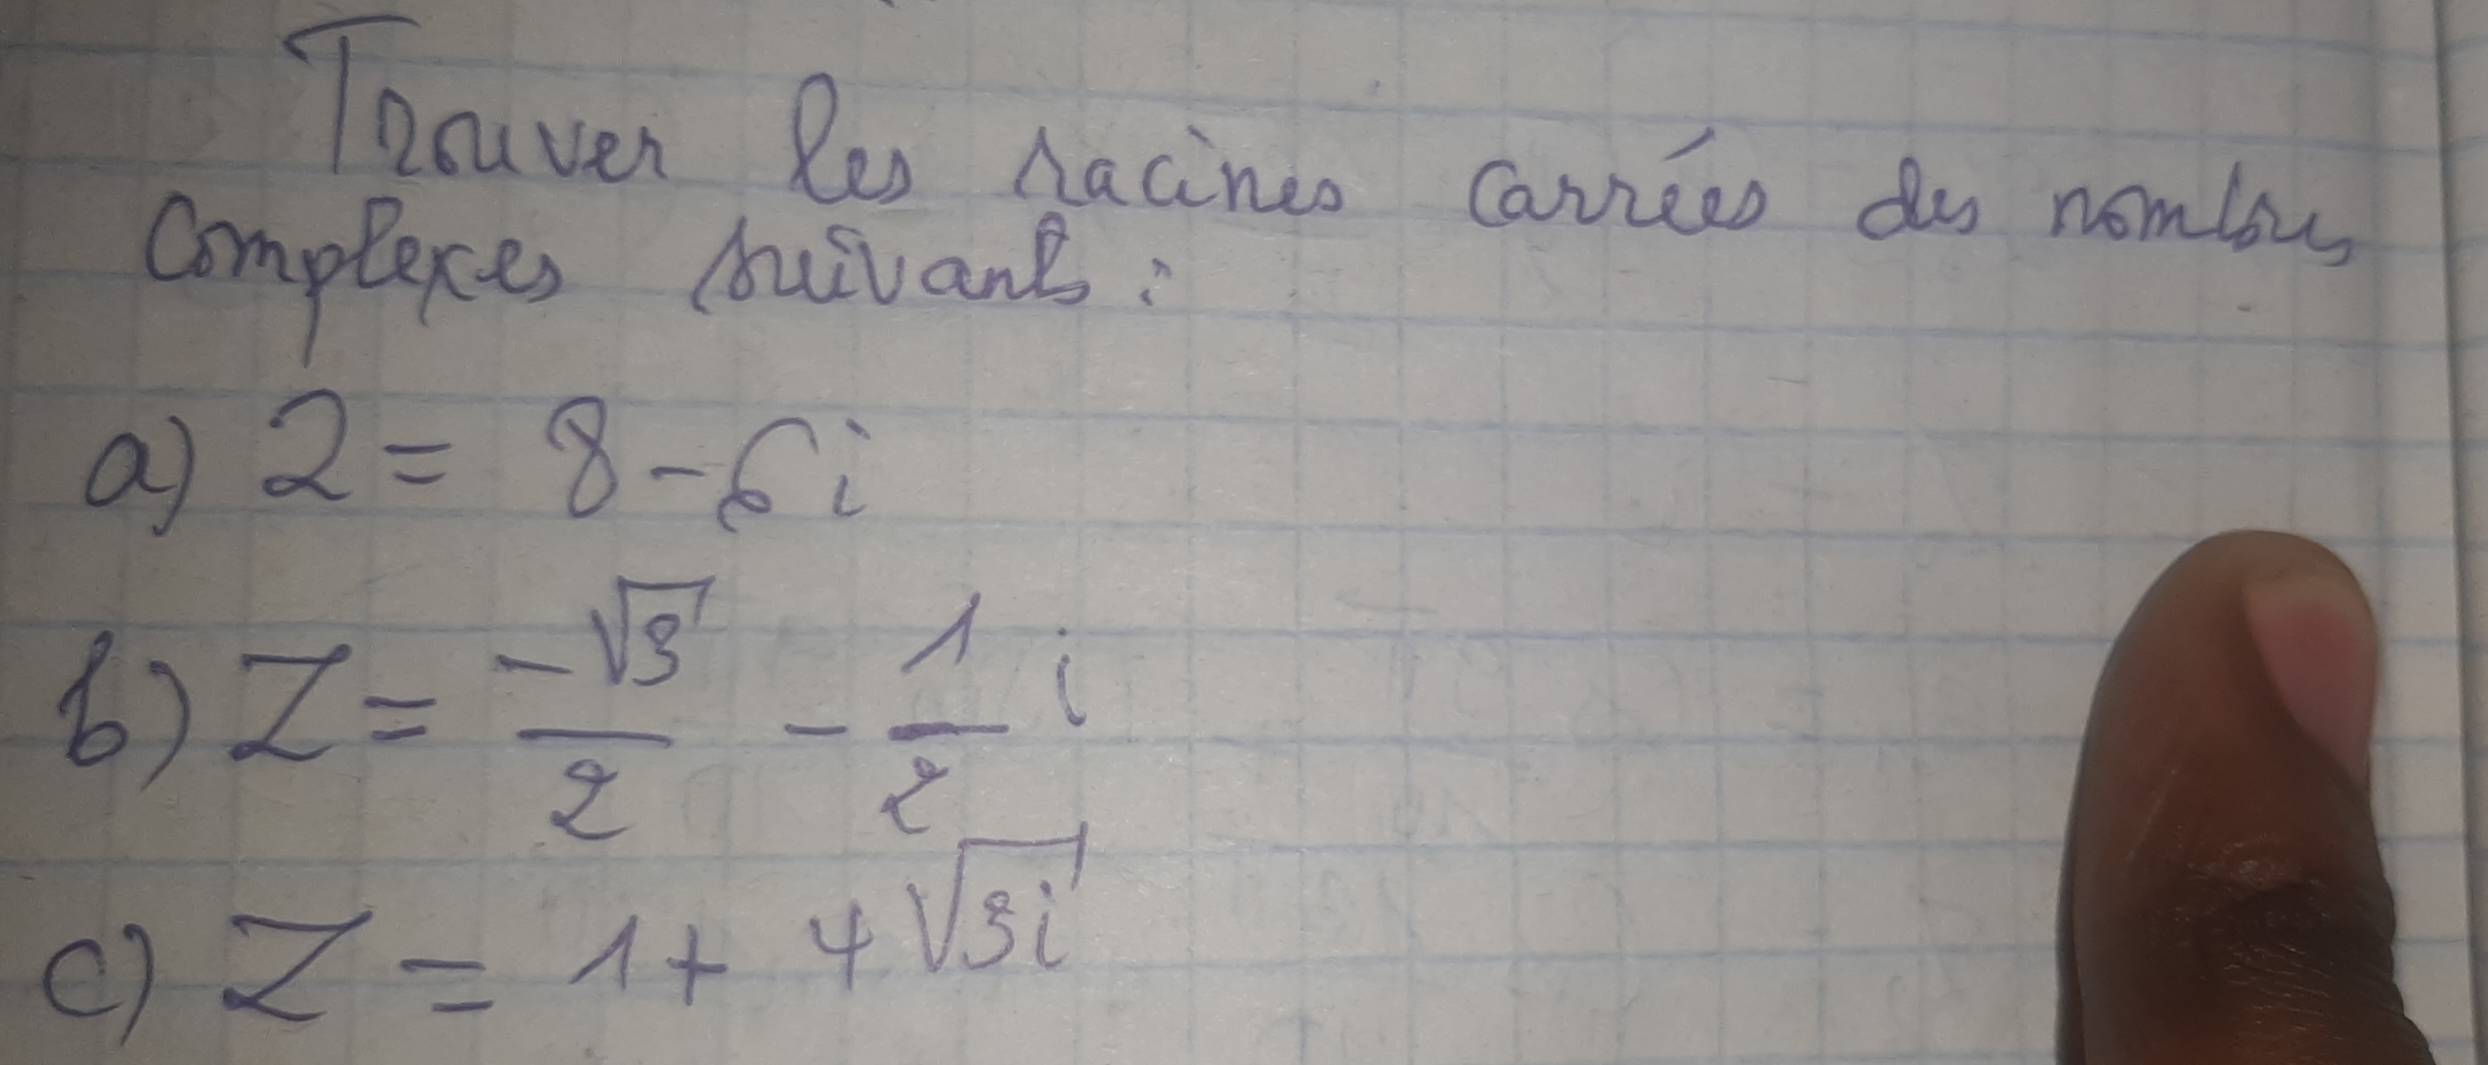 Trouver les racines carrées des nombres
complexes suivants :
a) Z = 8 - 6i
b) Z = -√3/2 - 1/2 i
c) Z = 1 + 4√3i